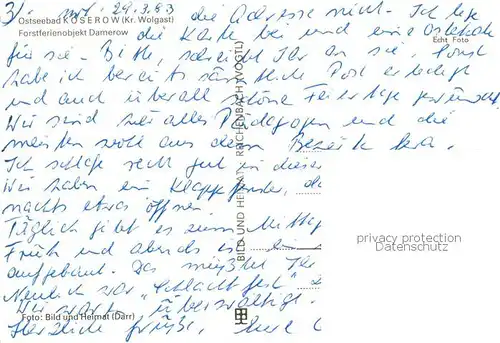 3/. 29.3.83 die Adresse nicht. Ich lege
Ostseebad KOSEROW (Kr. Wolgast)
Forstferienobjekt Damerow
die Karte bei und eine Osterkarte
Echt Foto
für sie. Bitte, schreibt Ihr an sie. Sonst
habe ich bereits sämtliche Post erledigt
und auch überall schöne Feiertage gewünscht.
Wir sind hier alles Pädagogen und die
meisten wohl aus dem Bezirk
Ich schlafe recht gut in dieser
Wir haben ein Klappfenster,
nachts etwas öffnen.
Täglich gibt es zum Mittag
Früh und abends ist ein
aufgebaut. Das müßtet Ihr
Neulich war "Schlachtfest"
Wir waren überwältigt.
Foto: Bild und Heimat (Darr)
Herzliche Grüße, Eure
BILD UND HEIMAT REICHENBACH (VOGTL)
privacy protection
Datenschutz